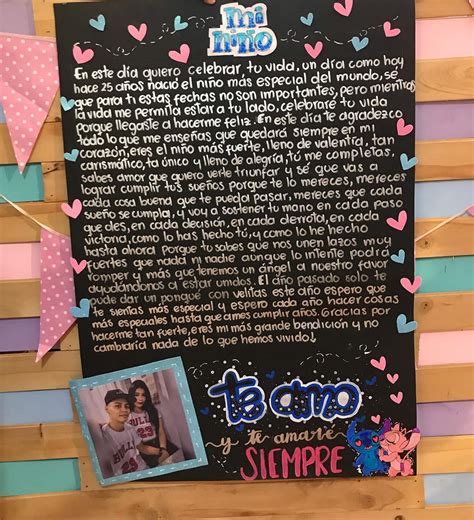 mi
niño
En este día quiero celebrar tu vida, un día como hoy
hace 25 años nació el niño más especial del mundo, se
que para ti estas fechas no son importantes, pero mientras
la vida me permita estar a tu lado, celebraré tu vida
porque llegaste a hacerme feliz. En este día te agradezco
todo lo que me enseñas que quedará siempre en mi
corazón, eres el niño más fuerte, lleno de valentía, tan
carismático, tan único y lleno de alegría, tú me completas,
sabes amor que quiero verte triunfar y se que vas a
lograr cumplir tus sueños porque te lo mereces, mereces
cada cosa buena que te pueda pasar, mereces que cada
sueño se cumpla, y voy a sostener tu mano en cada paso
que des, en cada decisión, en cada derrota, en cada
victoria, como lo has hecho tú, y como lo he hecho
hasta ahora. Porque tu sabes que nos unen lazos muy
fuertes que nada ni nadie aunque lo intente podrá
romper y más que tenemos un ángel a nuestro favor
ayudándonos a estar unidos. El año pasado solo te
pude dar un porqué con velitas este año espero que
te sientas más especial y espero cada año hacer cosas
más especiales hasta que ames cumplir años. Gracias por
hacerme tan fuerte, eres mi más grande bendición y no
cambiaría nada de lo que hemos vivido
BULLS
23
23
te amo
y te amaré
SIEMPRE